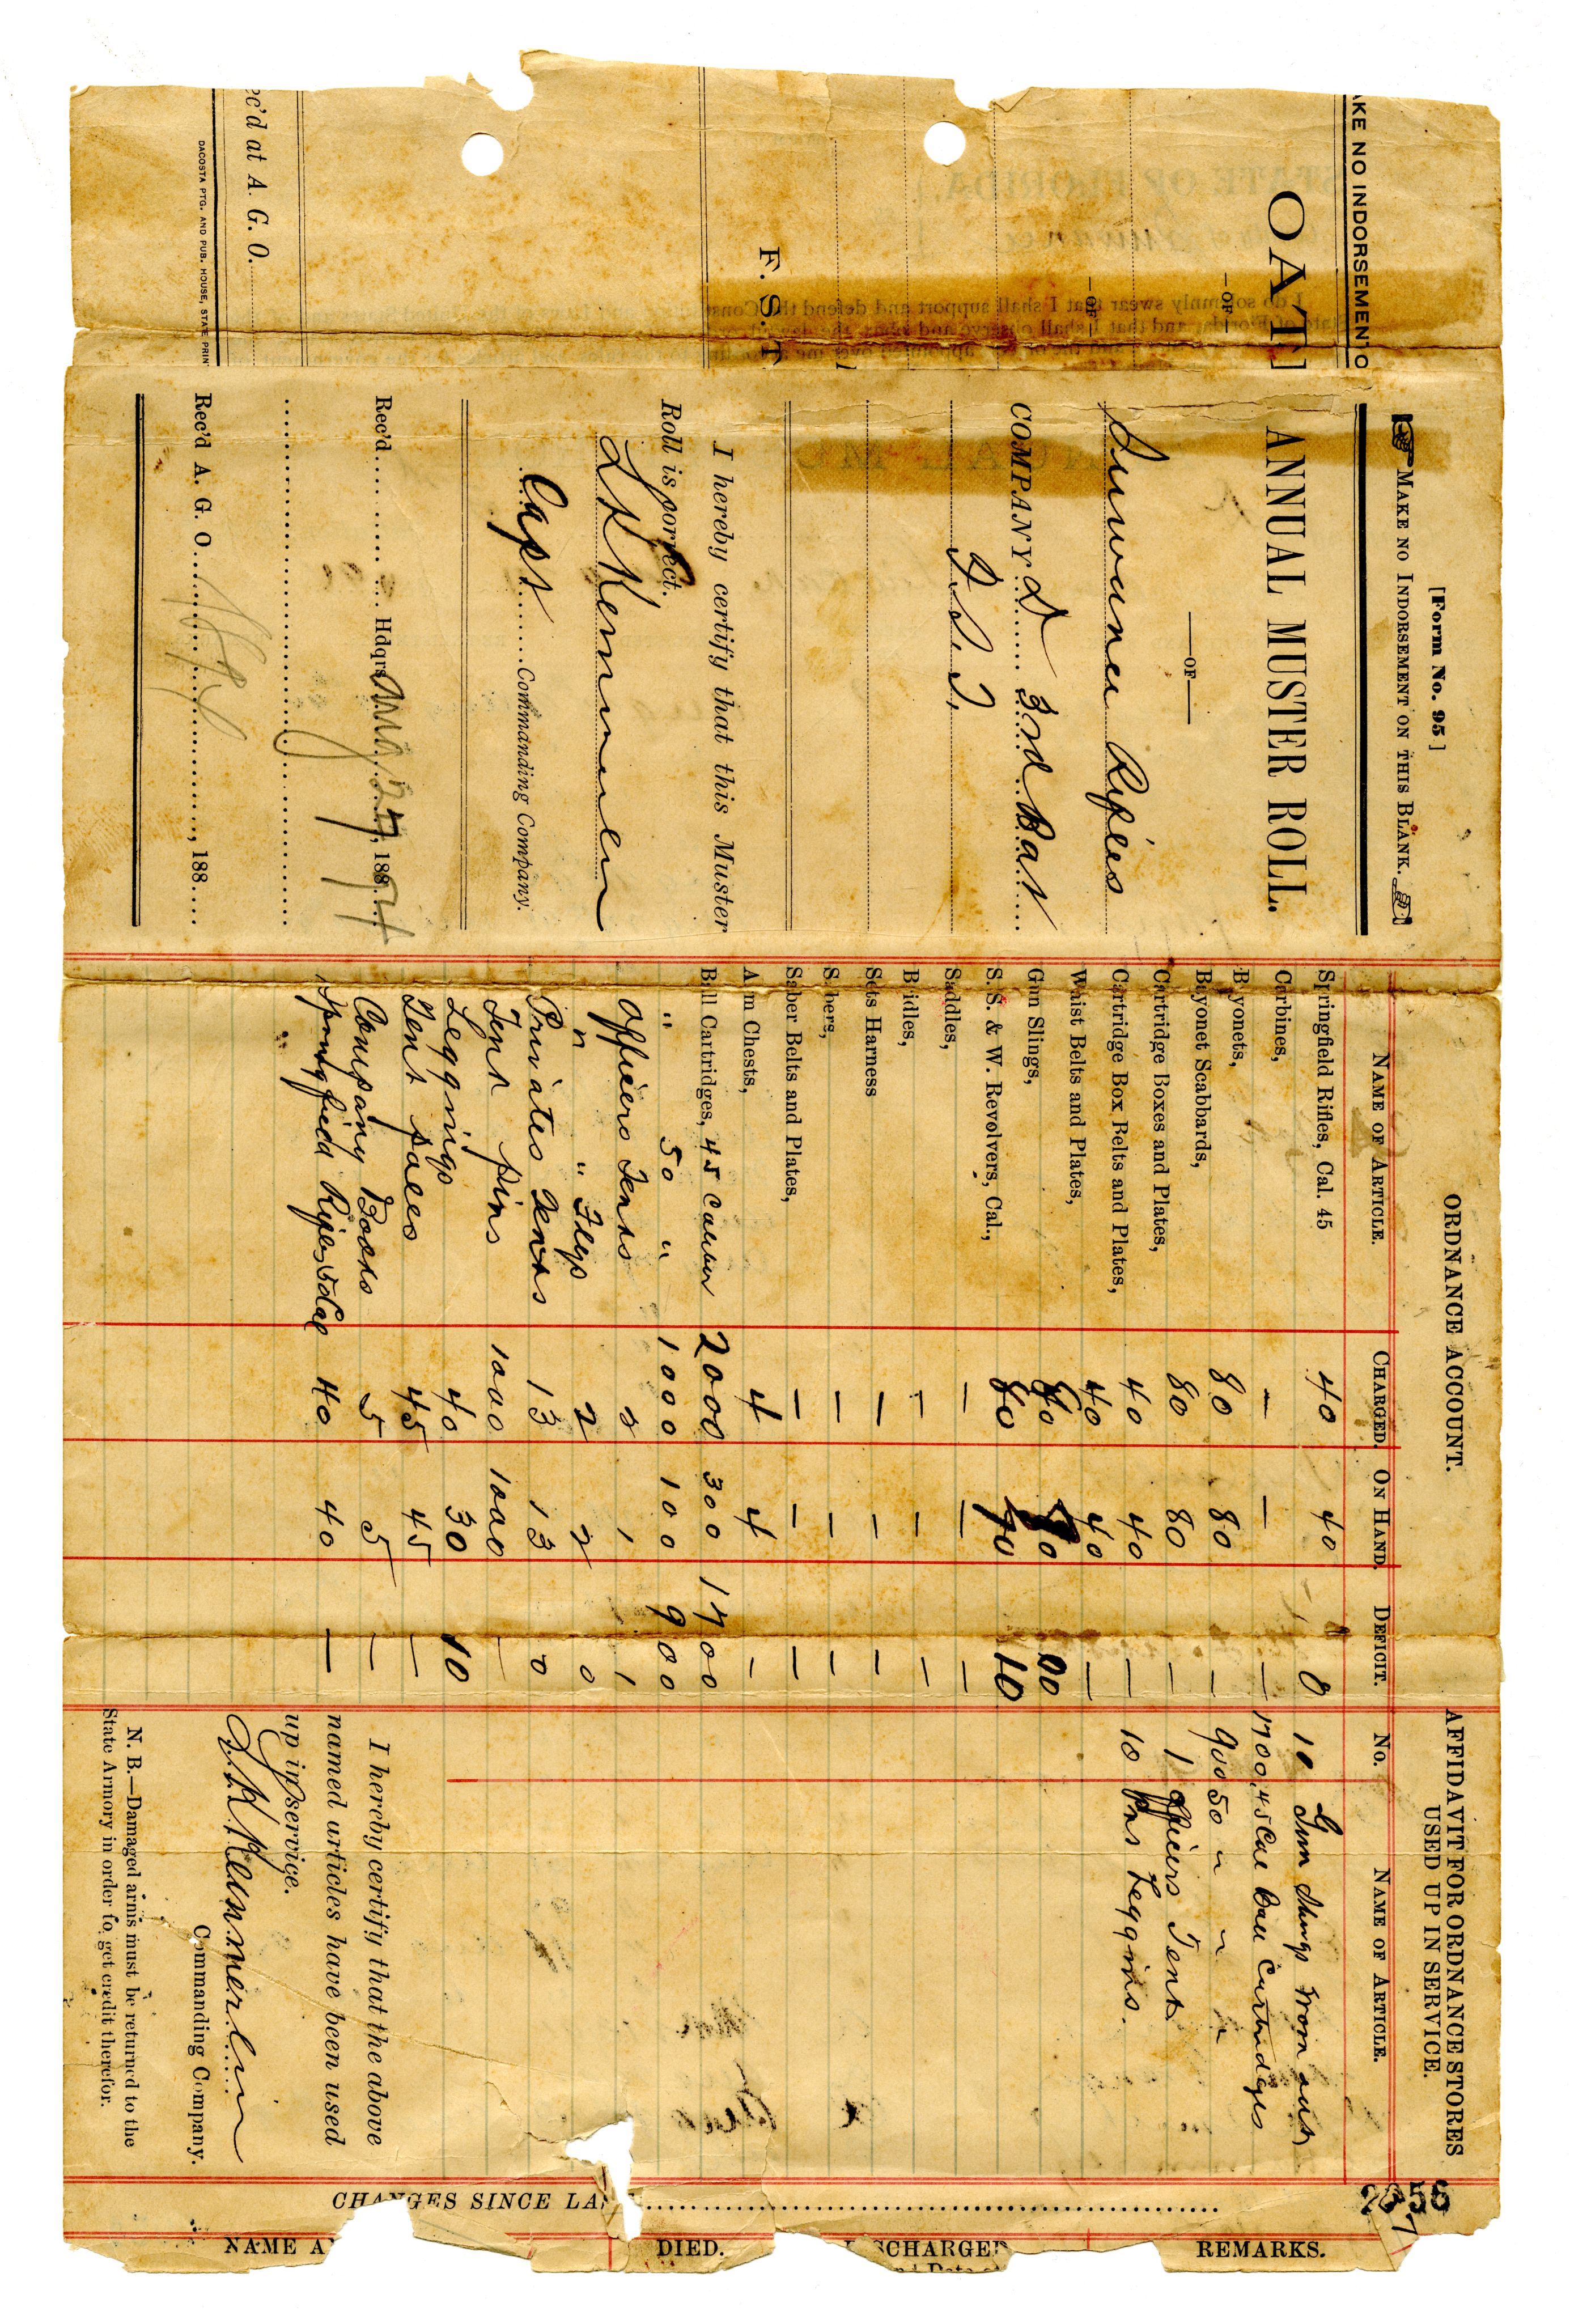 MAKE NO INDORSEMENT O
OAT
—OF—
—OF—
F. S. T
ec'd at A. G. O.
DACOSTA PTG. AND PUB. HOUSE, STATE PRIN
[Form No. 95]
MAKE NO INDORSEMENT ON THIS BLANK.
ANNUAL MUSTER ROLL.
—OF—
Suwanee Rifles
COMPANY D 3rd Bat
F. S. T.
I hereby certify that this Muster
Roll is correct.
Capt Commanding Company.
Rec'd Hdqrs Aug 27, 1894
Rec'd A. G. O. , 188
ORDNANCE ACCOUNT.
NAME OF ARTICLE. CHARGED. ON HAND. DEFICIT.
Springfield Rifles, Cal. 45 40 40 0
Carbines, — — —
Bayonets, 80 80 —
Bayonet Scabbards, 80 80 —
Cartridge Boxes and Plates, 40 40 —
Cartridge Box Belts and Plates, 40 40 —
Waist Belts and Plates,
Gun Slings,
S. S. & W. Revolvers, Cal.,
Saddles, — — —
Bridles, — — —
Sets Harness — — —
Sabers, — — —
Saber Belts and Plates, — — —
Arm Chests, 4 4 —
Ball Cartridges, 45 Caliber 2000 300 1700
" 50 " 1000 100 900
Officers Tents 2 1 1
" " Flys 2 2 0
Privates Tents 13 13 0
Tent pins 1000 1000 —
Leggings 40 30 10
Tent poles 45 45 —
Company Books 5 5 —
Springfield Rifles 50 Cal 40 40 —
AFFIDAVIT FOR ORDNANCE STORES
USED UP IN SERVICE.
No. NAME OF ARTICLE.
10 Gun Slings worn out
1700 .45 Cal Ball Cartridges
900 50 " " "
1 officers Tent
10 Prs Leggins.
I hereby certify that the above
named articles have been used
up in service.
Commanding Company.
N. B.—Damaged arms must be returned to the
State Armory in order to get credit therefor.
CHANGES SINCE LA
NAME A DIED. SCHARGED REMARKS.